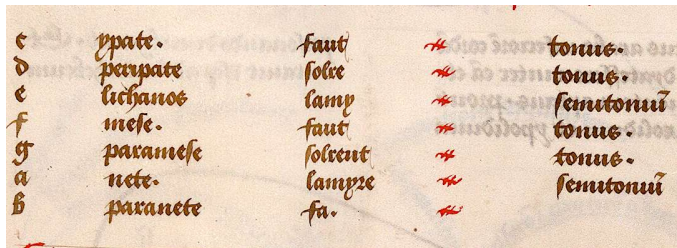 c ypate. faut tonus.
d peripate solre tonus.
e lichanos lamy semitoniū
f mese. faut tonus.
g paramese solreut tonus.
a nete. lamyre semitoniū
b paranete fa.